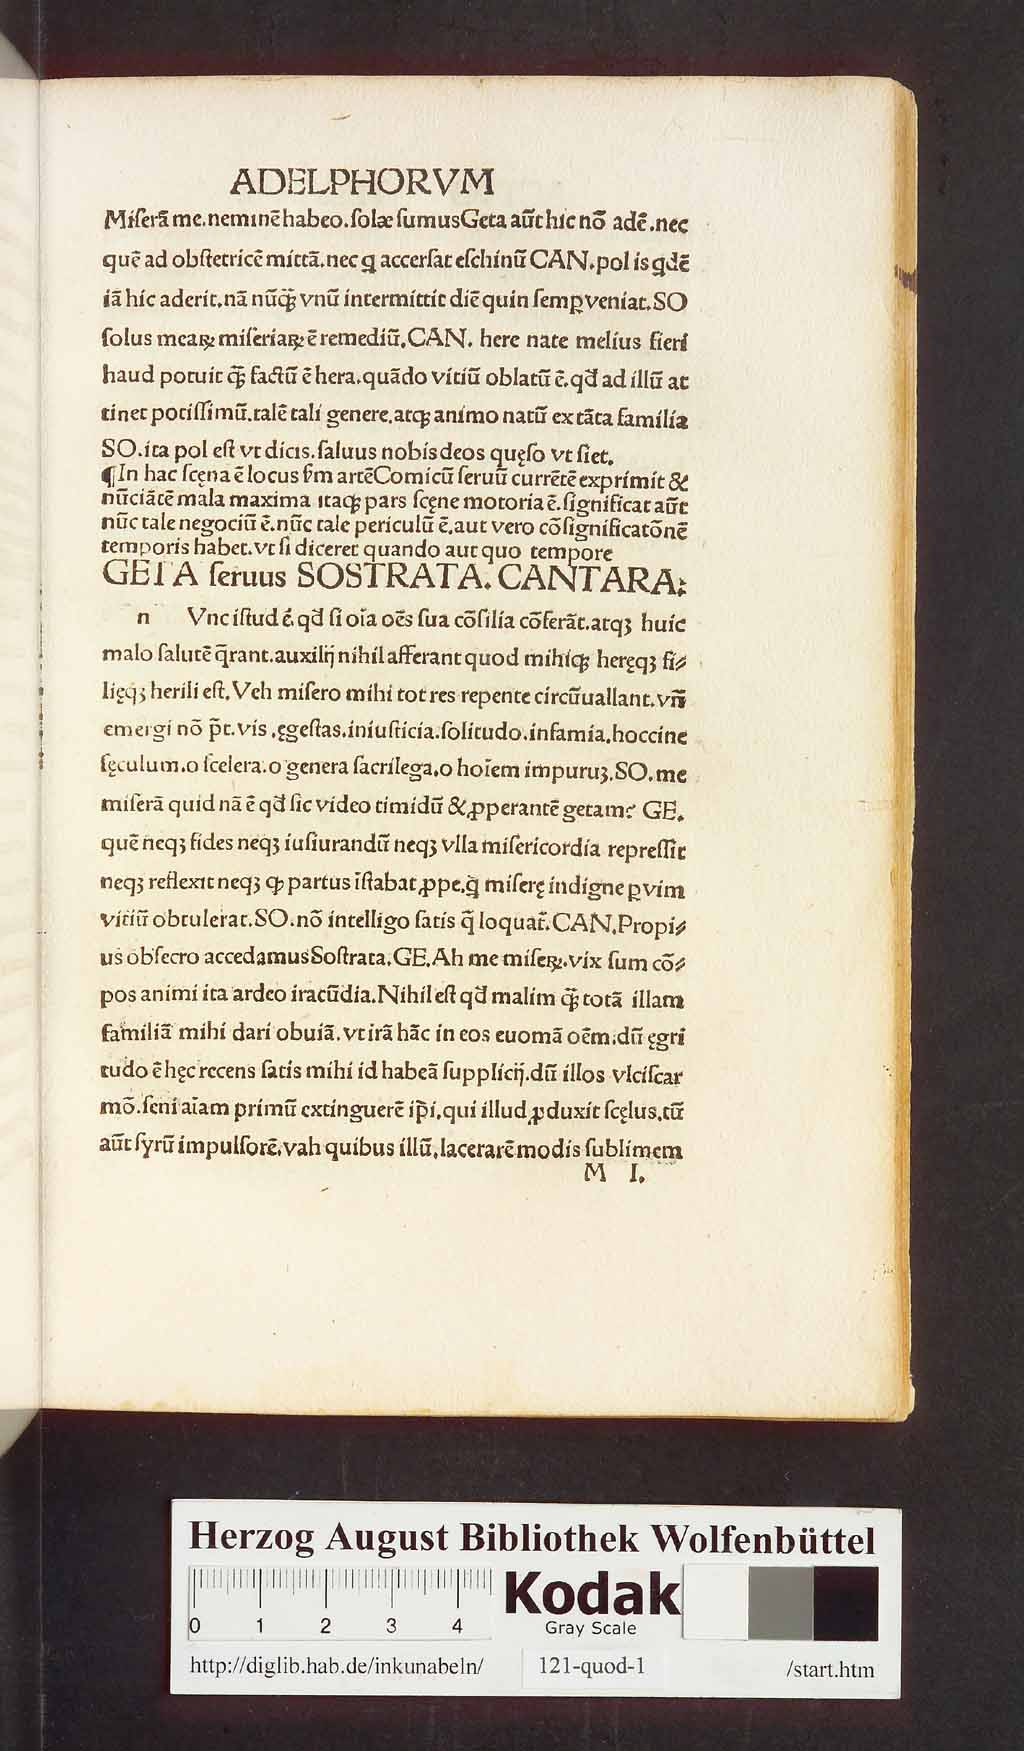 ADELPHORVM
Miſerã me.neminẽ habeo.ſolæ ſumusGeta aũt hic nõ adẽ.nec
quẽ ad obſtetricẽ mittã.nec ꝗ accerſat eſchinũ CAN.pol is ꝗdẽ
iã hic aderit.nã nũꝙ̃ vnũ intermittit diẽ quin ſemꝑ veniat.SO
ſolus meaꝝ miſeriaꝝ ẽ remediũ.CAN. here nate melius fieri
haud potuit ꝙ̃ factũ ẽ hera.quãdo vitiũ oblatũ ẽ.qđ ad illũ at
tinet potiſſimũ.talẽ tali genere.atqꝫ animo natũ ex tãta familia
SO.ita pol eſt vt dicis.ſaluus nobis deos quęſo vt ſiet.
¶In hac ſcęna ẽ locus ẜm artẽComicũ ſeruũ currẽtẽ exprimit &
nũciãtẽ mala maxima itaqꝫ pars ſcęne motoria ẽ.ſignificat aũt
nũc tale negociũ ẽ.nũc tale periculũ ẽ.aut vero cõſignificatõnẽ
temporis habet.vt ſi diceret quando aut quo tempore
GETA ſeruus SOSTRATA. CANTARA:
n Vnc iſtud ẽ.qđ ſi oĩa oẽs ſua cõſilia cõferãt.atqꝫ huic
malo ſalutẽ q̃rant.auxilij nihil afferant quod mihiqꝫ heręqꝫ fi⸗
lięqꝫ herili eſt.Veh miſero mihi tot res repente circũuallant.vñ
emergi nõ p̃t.vis.ęgeſtas.iniuſticia.ſolitudo.infamia.hoccine
ſęculum.o ſcelera.o genera ſacrilega.o hoĩem impuruꝫ.SO.me
miſerã quid nã ẽ qđ ſic video timidũ & ꝓperantẽ getam? GE.
quẽ neqꝫ fides neqꝫ iuſiurandũ neqꝫ vlla miſericordia repreſſit
neqꝫ reflexit neqꝫ ꝙ partus ĩſtabat ꝓpe.q̃ miſerę indigne ꝑ vim
vitiũ obtulerat.SO.nõ intelligo ſatis q̃ loquat̃.CAN.Propi⸗
us obſecro accedamusSoſtrata.GE.Ah me miſeꝝ.vix ſum cõ⸗
pos animi ita ardeo iracũdia.Nihil eſt qđ malim ꝙ̃ totã illam
familiã mihi dari obuiã.vt irã hãc in eos euomã oẽm.dũ ęgri
tudo ẽ hęc recens ſatis mihi id habeã ſupplicij.dũ illos vlciſcar
mõ.ſeni aĩam primũ extinguerẽ ip̃i.qui illud ꝓduxit ſcęlus.tũ
aũt ſyrũ impulſorẽ.vah quibus illũ.lacerarẽ modis ſublimem
M I.
Herzog August Bibliothek Wolfenbüttel
0 1 2 3 4
Kodak
Gray Scale
http://diglib.hab.de/inkunabeln/ 121-quod-1 /start.htm